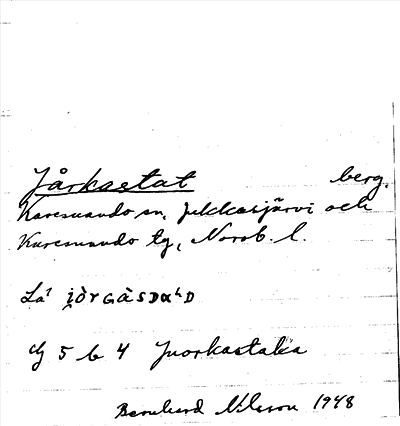 Jårkastat berg.
Karesuando sn, Jukkasjärvi och
Karesuando tg, Norrb. l.
La¹ i̯òrGàsDaᴸD
Gf 5 b 4 Juorkastaka
Bernhard Nilsson 1948